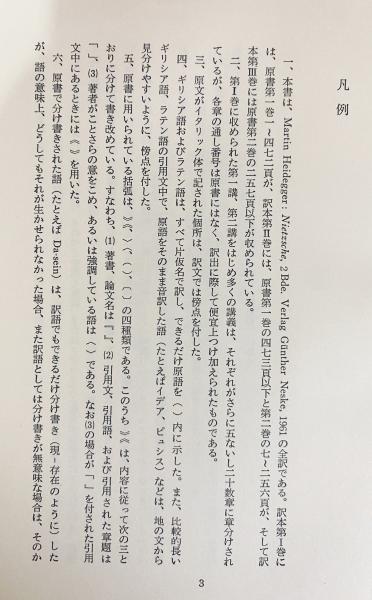 凡例
一、本書は、Martin Heidegger : Nietzsche, 2 Bde. Verlag Günther Neske, 1961 の全訳である。訳本第Ⅰ巻に
は、原書第一巻一〜四七二頁が、訳本第Ⅱ巻には、原書第一巻の四七三頁以下と第二巻の七〜二五六頁が、そして訳
本第Ⅲ巻には原書第二巻の二五七頁以下が収められている。
二、第Ⅰ巻に収められた第一講、第二講をはじめ多くの講義は、それぞれがさらに五ないし二十数章に章分けされ
ているが、各章の通し番号は原書にはなく、訳出に際して便宜上つけ加えられたものである。
三、原文がイタリック体で記された個所は、訳文では傍点を付した。
四、ギリシア語およびラテン語は、すべて片仮名で訳し、できるだけ原語を（ ）内に示した。また、比較的長い
ギリシア語、ラテン語の引用文中で、原語をそのまま音訳した語（たとえばイデア、ピュシス）などは、地の文から
見分けやすいように、傍点を付した。
五、原書に用いられている括弧は、》《、〉〈、（ ）、〔 〕の四種類である。このうち》《は、内容に従って次の三と
おりに分けて書き改めている。すなわち、⑴ 著書、論文名は『 』、⑵ 引用文、引用語、および引用された章題は
「 」、⑶ 著者がことさらの意をこめ、あるいは強調している語は〈 〉である。なお⑶の場合が「 」を付された引用
文中にあるときには《 》を用いた。
六、原書で分け書きされた語（たとえば Da-sein）は、訳語でもできるだけ分け書き（現-存在のように）した
が、語の意味上、どうしてもそれが生かせられなかった場合、また訳語としては分け書きが無意味な場合は、そのか
3